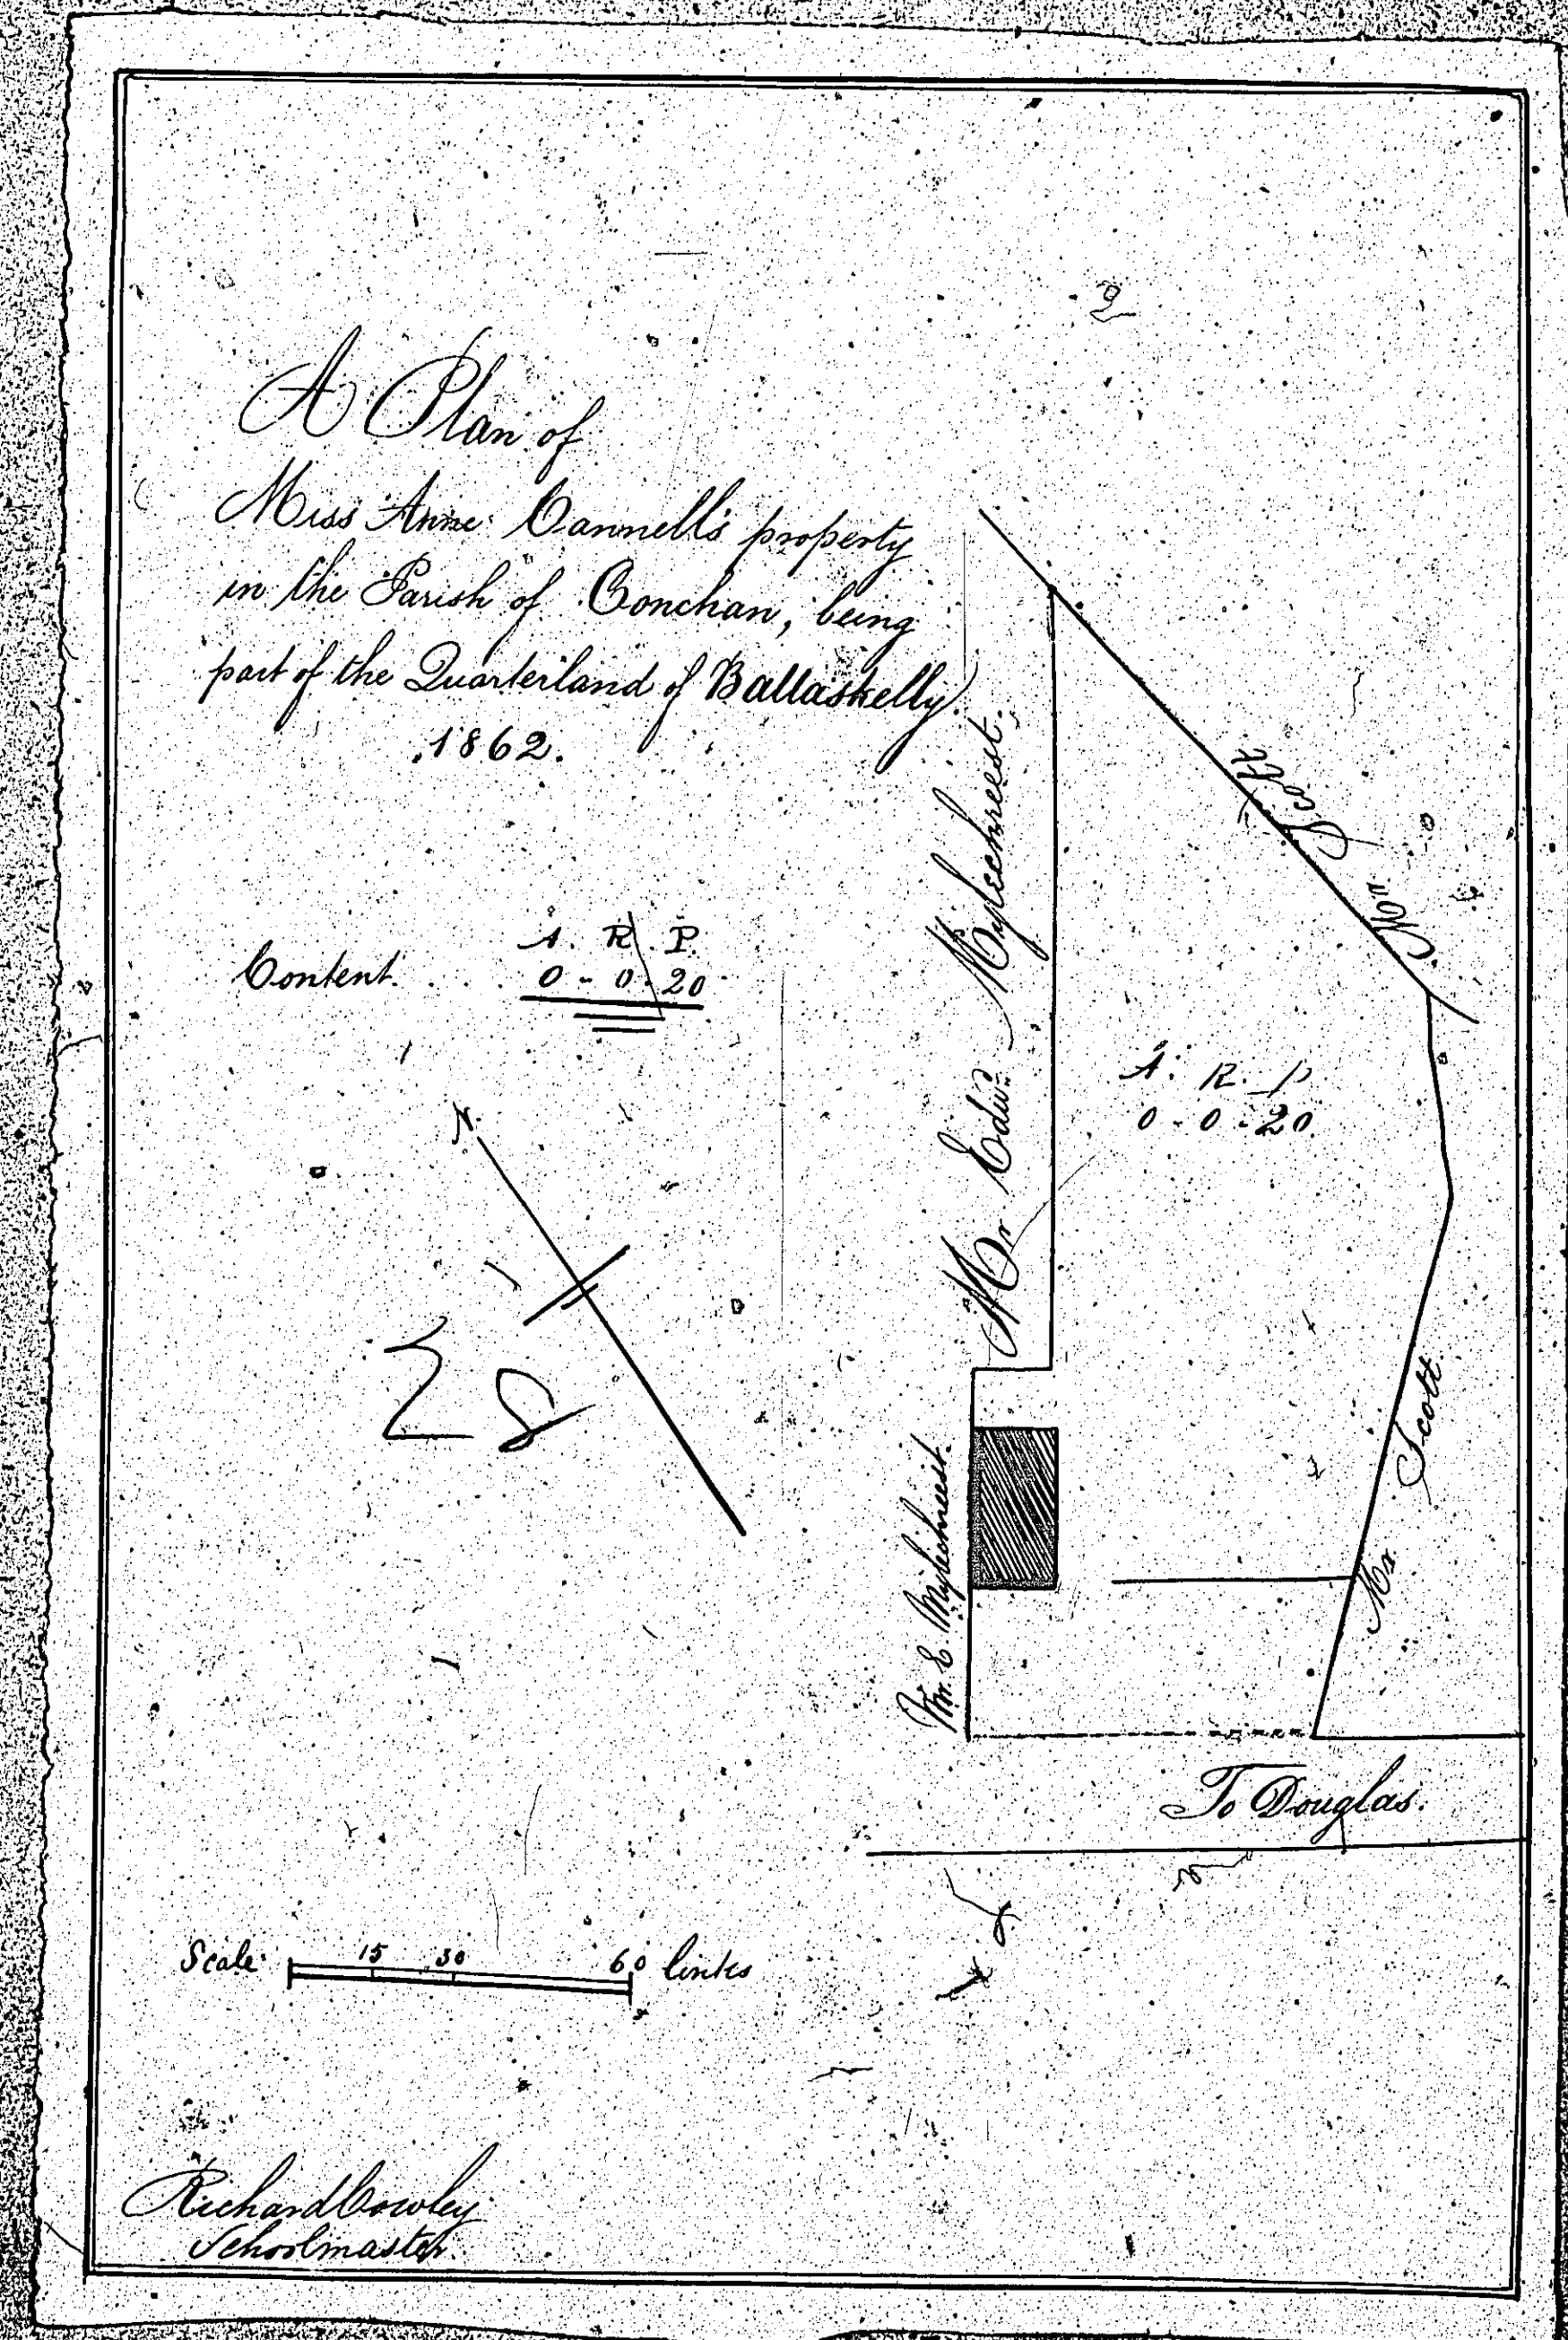 A Plan of
Miss Anne Cannell's property
in the Parish of Conchan, being
part of the Quarterland of Ballaskelly.
1862.
Content. . . . A. R. P.
0 - 0 - 20
N.
28
Mr Edwd. Mylechreest.
Mr Scott
A. R. P.
0 - 0 - 20
Mr. E. Mylechreest.
Mr. Scott
To Douglas.
Scale 15 30 60 links
Richard Cowley
Schoolmaster.